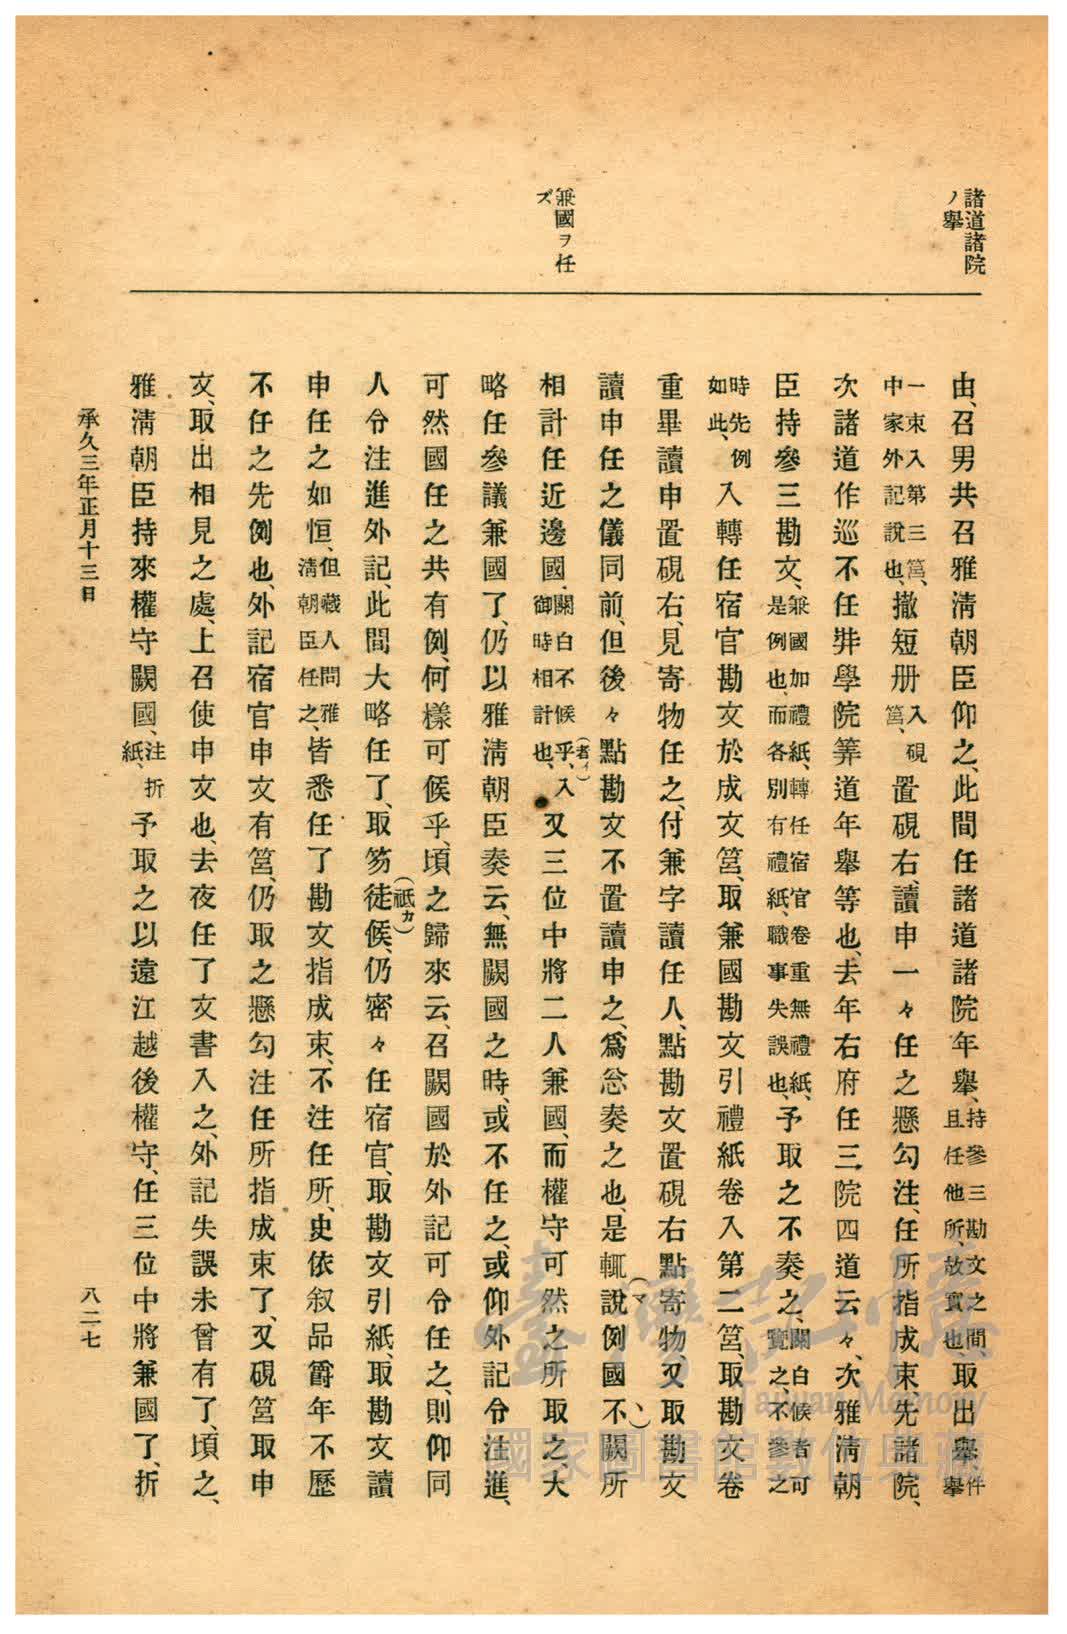 諸道諸院
ノ擧
兼國ヲ任
ズ
由、召男共召雅淸朝臣仰之、此間任諸道諸院年擧、持參三勘文之間、且任他所、故實也、取出擧、件擧
一束入第三筥、中家外記說也、撤短册入硯筥、置硯右讀申一々任之懸勾注、任所指成束先諸院、
次諸道作巡不任幷學院筭道年擧等也、去年右府任三院四道云々、次雅淸朝
臣持參三勘文、兼國加禮紙、轉任宿官卷重無禮紙、是例也、而各別有禮紙、職事失誤也、予取之不奏之、關白候者可覽之、不參之
時先例如此、入轉任宿官勘文於成文筥、取兼國勘文引禮紙卷入第二筥、取勘文卷
重畢讀申置硯右、見寄物任之、付兼字讀任人、點勘文置硯右點寄物、又取勘文
讀申任之儀同前、但後々點勘文不置讀申之、爲忩奏之也、是輒(マヽ)說例國不闕所
相計任近邊國、關白不候乎、(者イ)入御時相計也、又三位中將二人兼國、而權守可然之所取之、大
略任參議兼國了、仍以雅淸朝臣奏云、無闕國之時、或不任之、或仰外記令注進、
可然國任之共有例、何樣可候乎、頃之歸來云、召闕國於外記可令任之、則仰同
人令注進外記、此間大略任了、取笏徒(祗カ)候、仍密々任宿官、取勘文引紙、取勘文讀
申任之如恒、但藏人問雅淸朝臣任之、皆悉任了勘文指成束、不注任所、史依叙品爵年不歷
不任之先例也、外記宿官申文有筥、仍取之懸勾注任所指成束了、又硯筥取申
文、取出相見之處、上召使申文也、去夜任了文書入之、外記失誤未曾有了、頃之、
雅淸朝臣持來權守闕國、注折紙、予取之以遠江越後權守、任三位中將兼國了、折
承久三年正月十三日
八二七
臺灣記憶
Taiwan Memory
國家圖書館數位典藏